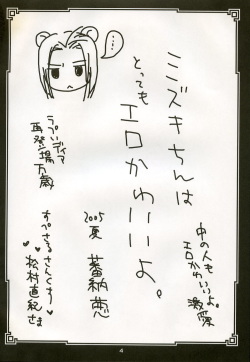 ミズキちんは
とっても
エロかわいいよ。
中の人も
エロかわいいよ。
激藻
2005
夏
蓄納 葱
らぶいディア
再登場万歳
すぺさるさんくす
松村直紀さま
4